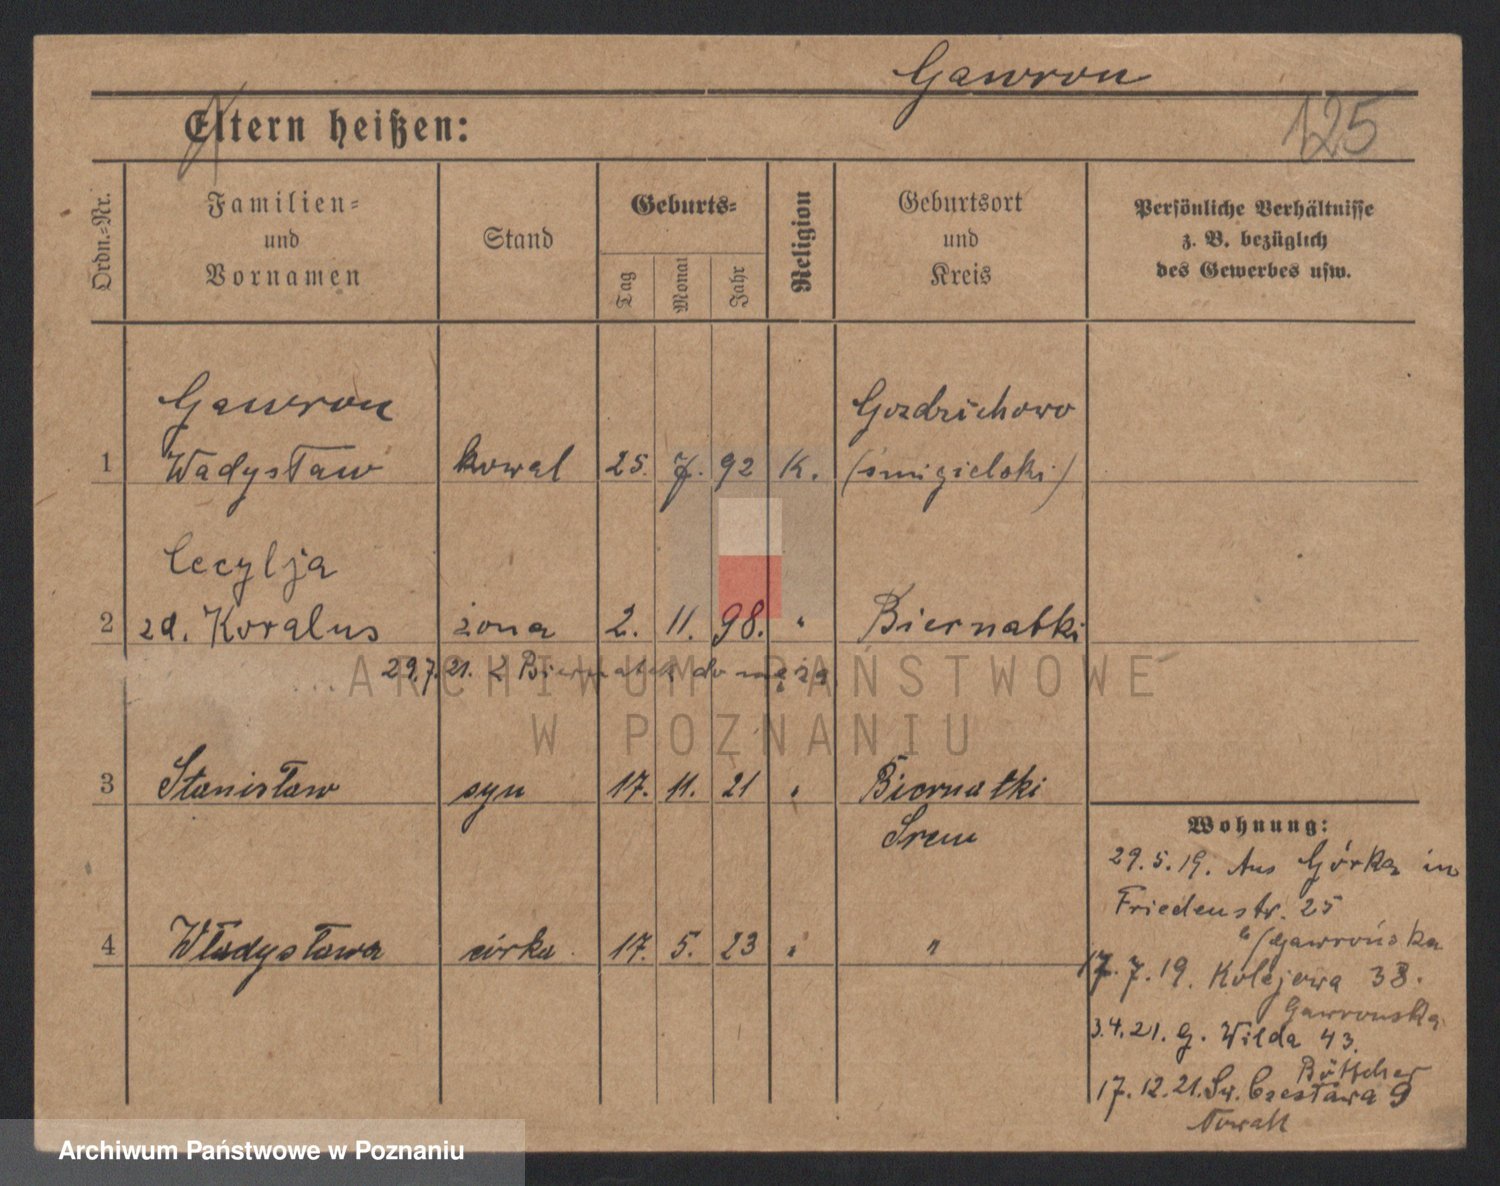 Gawron
125
Eltern heißen:
Ordn.-Nr.
Familien-
und
Vornamen
Stand
Geburts-
Tag
Monat
Jahr
Religion
Geburtsort
und
Kreis
Persönliche Verhältnisse
z. B. bezüglich
des Gewerbes usw.
Gawron Gozdzichowo
1 Władysław kowal 25. 7. 92 K. (śmigielski)
Cecylja
2 zd. Koralus żona 2. 11. 98. " Biernatki
29.7.21. z Biernatek do męża
3 Stanisław syn 17. 11. 21 " Biernatki
Śrem
4 Władysława córka 17. 5. 23 " "
Wohnung:
29.5.19. Aus Górka in
Friedenstr. 25
b/Gawrońska
17.7.19. Kolejowa 38.
Gawronska
3.4.21. G. Wilda 43.
Böttcher
17.12.21. Św. Czesława 9
Nowak
ARCHIWUM PAŃSTWOWE
W POZNANIU
Archiwum Państwowe w Poznaniu